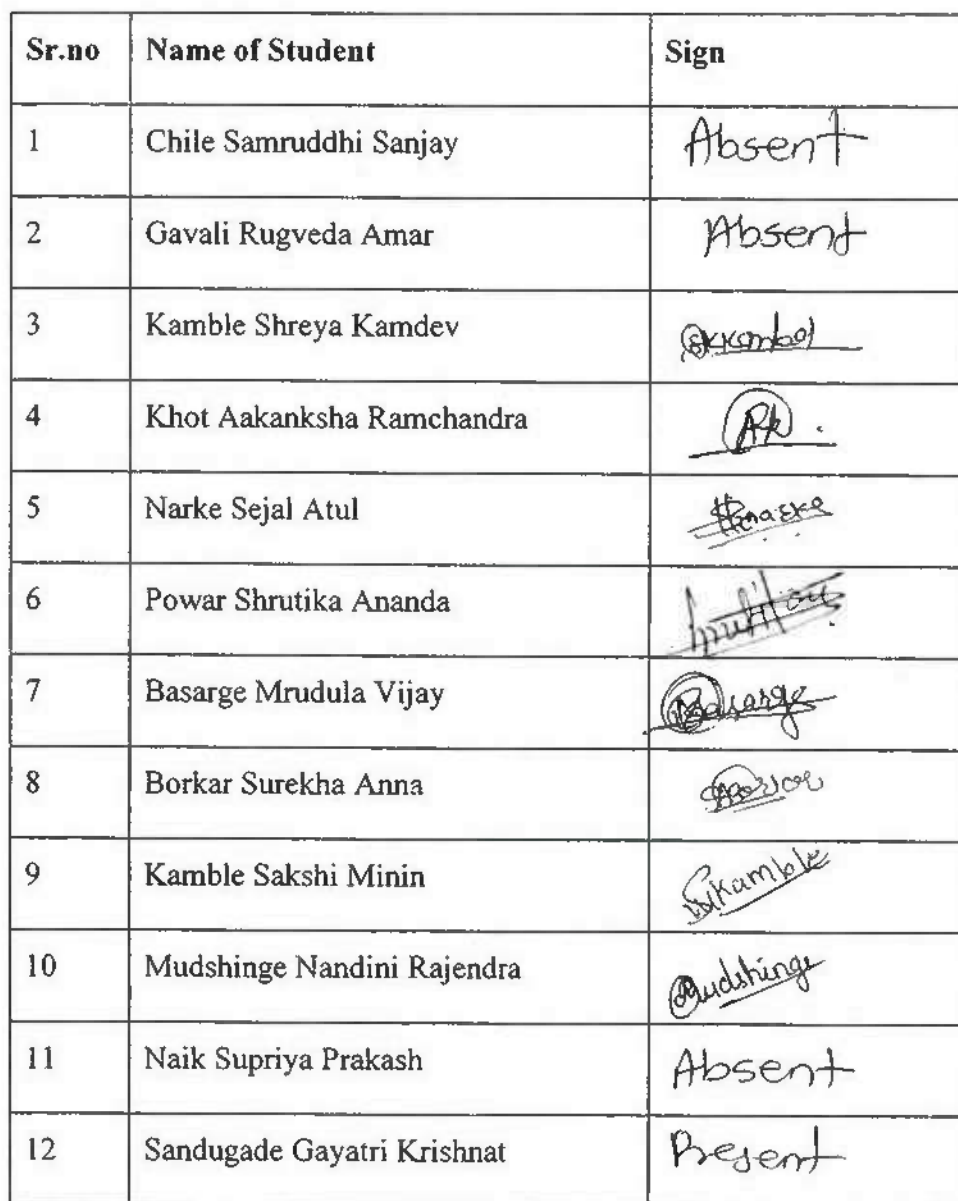 Sr.no Name of Student Sign
1 Chile Samruddhi Sanjay Absent
2 Gavali Rugveda Amar Absent
3 Kamble Shreya Kamdev
4 Khot Aakanksha Ramchandra AK.
5 Narke Sejal Atul
6 Powar Shrutika Ananda
7 Basarge Mrudula Vijay Basarge
8 Borkar Surekha Anna
9 Kamble Sakshi Minin SKamble
10 Mudshinge Nandini Rajendra Mudshinge
11 Naik Supriya Prakash Absent
12 Sandugade Gayatri Krishnat Present